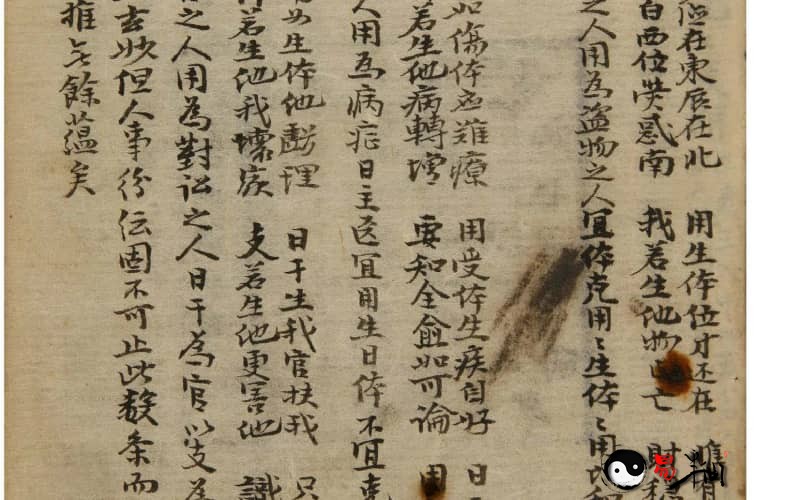 在東辰在北 用生体位才还在
白西位熒惑南 我若生他物 亡 財
之人用為盗物之人宜体克用〻生体〻用
如傷体应難療 用受体生疾自好 日
若生他病轉增 要知全愈如何論 用
人用為病症日主医宜用生日体不宜克
生体他 理 日干生我官扶我 只
若生他我壞衰 支若生他更害他 識
之人用為對訟之人日干為官以支為
玄妙但人事紛紜固不可止此数条而
推无餘蘊矣